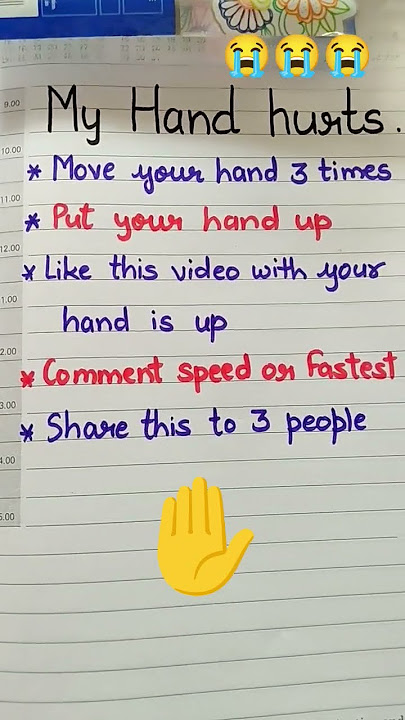 My Hand hurts.
* Move your hand 3 times
* Put your hand up
* Like this video with your
hand is up
* Comment speed or fastest
* Share this to 3 people
9.00
10.00
11.00
12.00
1.00
2.00
3.00
4.00
5.00